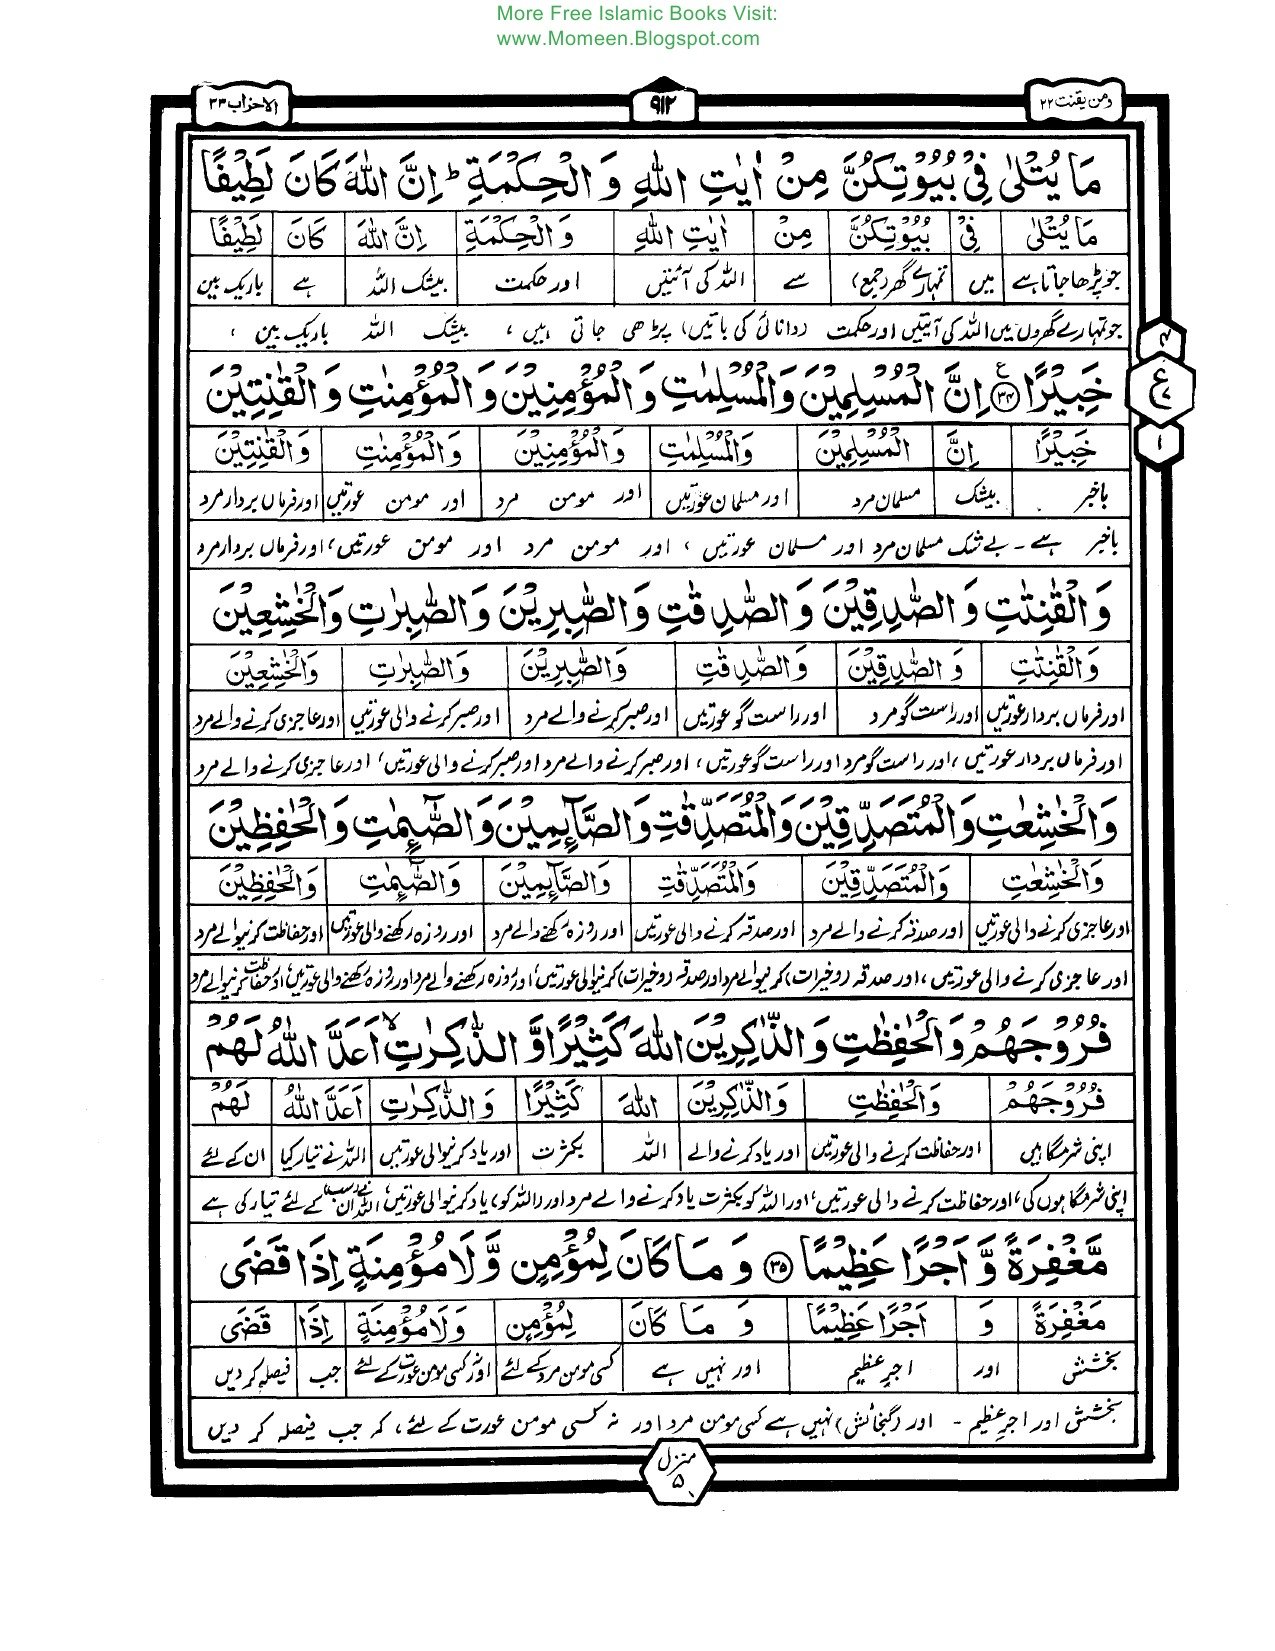 More Free Islamic Books Visit:
www.Momeen.Blogspot.com
ومن یقنت ۲۲
۹۱۲
الاحزاب ۳۳
مَا يُتْلٰى فِيْ بُيُوْتِكُنَّ مِنْ اٰيٰتِ اللّٰهِ وَ الْحِكْمَةِ ؕ اِنَّ اللّٰهَ كَانَ لَطِيْفًا
مَا يُتْلٰى فِيْ بُيُوْتِكُنَّ مِنْ اٰيٰتِ اللّٰهِ وَ الْحِكْمَةِ اِنَّ اللّٰهَ كَانَ لَطِيْفًا
جو پڑھا جاتا ہے میں تمہارے گھر (جمع) سے اللہ کی آئتیں اور حکمت بیشک اللہ ہے باریک بین
جو تمہارے گھروں میں اللہ کی آیتیں اور حکمت (دانائی کی باتیں) پڑھی جاتی ہیں، بیشک اللہ باریک بین،
خَبِيْرًا ۳۴ اِنَّ الْمُسْلِمِيْنَ وَالْمُسْلِمٰتِ وَ الْمُؤْمِنِيْنَ وَ الْمُؤْمِنٰتِ وَ الْقٰنِتِيْنَ
خَبِيْرًا اِنَّ الْمُسْلِمِيْنَ وَالْمُسْلِمٰتِ وَ الْمُؤْمِنِيْنَ وَ الْمُؤْمِنٰتِ وَ الْقٰنِتِيْنَ
باخبر بیشک مسلمان مرد اور مسلمان عورتیں اور مومن مرد اور مومن عورتیں اور فرماں بردار مرد
باخبر ہے ۔ بے شک مسلمان مرد اور مسلمان عورتیں، اور مومن مرد اور مومن عورتیں، اور فرماں بردار مرد
ع
۴
۱
وَ الْقٰنِتٰتِ وَ الصّٰدِقِيْنَ وَ الصّٰدِقٰتِ وَ الصّٰبِرِيْنَ وَ الصّٰبِرٰتِ وَ الْخٰشِعِيْنَ
وَ الْقٰنِتٰتِ وَ الصّٰدِقِيْنَ وَ الصّٰدِقٰتِ وَ الصّٰبِرِيْنَ وَ الصّٰبِرٰتِ وَ الْخٰشِعِيْنَ
اور فرماں بردار عورتیں اور راست گو مرد اور راست گو عورتیں اور صبر کرنے والے مرد اور صبر کرنے والی عورتیں اور عاجزی کرنے والے مرد
اور فرماں بردار عورتیں، اور راست گو مرد اور راست گو عورتیں، اور صبر کرنے والے مرد اور صبر کرنے والی عورتیں، اور عاجزی کرنے والے مرد
وَ الْخٰشِعٰتِ وَ الْمُتَصَدِّقِيْنَ وَ الْمُتَصَدِّقٰتِ وَ الصَّآىِٕمِيْنَ وَ الصّٰٓىِٕمٰتِ وَ الْحٰفِظِيْنَ
وَ الْخٰشِعٰتِ وَ الْمُتَصَدِّقِيْنَ وَ الْمُتَصَدِّقٰتِ وَ الصَّآىِٕمِيْنَ وَ الصّٰٓىِٕمٰتِ وَ الْحٰفِظِيْنَ
اور عاجزی کرنے والی عورتیں اور صدقہ کرنے والے مرد اور صدقہ کرنے والی عورتیں اور روزہ رکھنے والے مرد اور روزہ رکھنے والی عورتیں اور حفاظت کرنیوالے مرد
اور عاجزی کرنے والی عورتیں، اور صدقہ (و خیرات) کرنیوالے مرد اور صدقہ (و خیرات) کرنیوالی عورتیں، اور روزہ رکھنے والے مرد اور روزہ رکھنے والی عورتیں، اور حفاظت کرنیوالے مرد
فُرُوْجَهُمْ وَ الْحٰفِظٰتِ وَ الذّٰكِرِيْنَ اللّٰهَ كَثِيْرًا وَّ الذّٰكِرٰتِ ۙ اَعَدَّ اللّٰهُ لَهُمْ
فُرُوْجَهُمْ وَ الْحٰفِظٰتِ وَ الذّٰكِرِيْنَ اللّٰهَ كَثِيْرًا وَ الذّٰكِرٰتِ اَعَدَّ اللّٰهُ لَهُمْ
اپنی شرمگاہیں اور حفاظت کرنے والی عورتیں اور یاد کرنے والے اللہ بکثرت اور یاد کرنیوالی عورتیں اللہ نے تیار کیا ان کے لئے
اپنی شرمگاہوں کی، اور حفاظت کرنے والی عورتیں، اور اللہ کو بکثرت یاد کرنے والے مرد اور (اللہ کو) یاد کرنیوالی عورتیں، اللہ نے ان سب کے لئے تیار کی ہے
مَّغْفِرَةً وَّ اَجْرًا عَظِيْمًا ۳۵ وَ مَا كَانَ لِمُؤْمِنٍ وَّ لَا مُؤْمِنَةٍ اِذَا قَضَى
مَغْفِرَةً وَ اَجْرًا عَظِيْمًا وَ مَا كَانَ لِمُؤْمِنٍ وَلَا مُؤْمِنَةٍ اِذَا قَضَى
بخشش اور اجرِ عظیم اور نہیں ہے کسی مومن مرد کے لئے اور نہ کسی مومن عورت کے لئے جب فیصلہ کر دیں
بخشش اور اجرِ عظیم ۔ اور (گنجائش) نہیں ہے کسی مومن مرد اور نہ کسی مومن عورت کے لئے، کہ جب فیصلہ کر دیں
منزل
۵